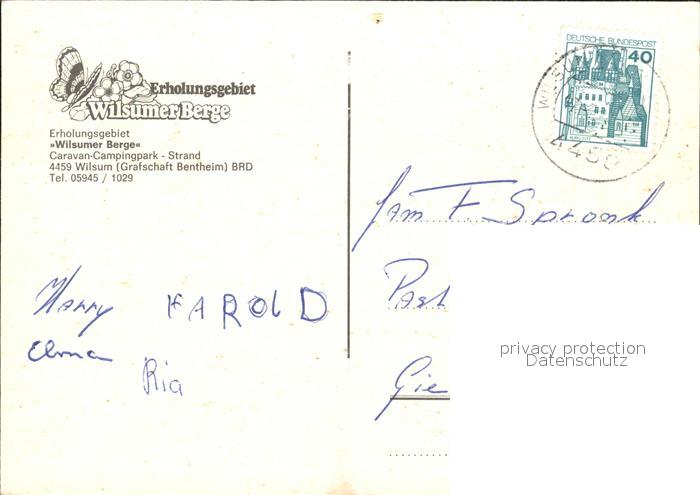 Erholungsgebiet
Wilsumer Berge
Erholungsgebiet
»Wilsumer Berge«
Caravan-Campingpark - Strand
4459 Wilsum (Grafschaft Bentheim) BRD
Tel. 05945 / 1029
DEUTSCHE BUNDESPOST
40
Fam F. Spronk
Gie
Harry HAROLD
Elma
Ria
privacy protection
Datenschutz